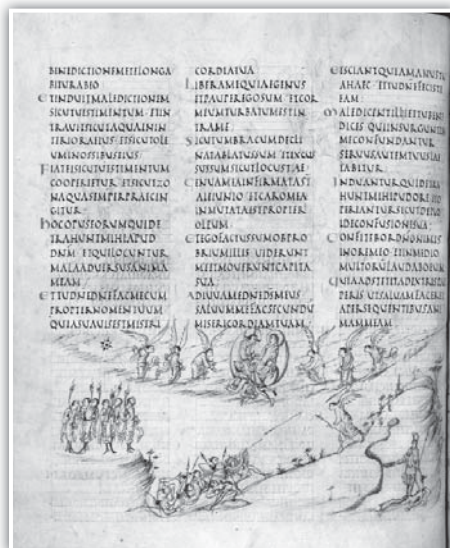 BENEDICTIONEMETELONGA
BITURABIO
ETINDUITMALEDICTIONEM
SICUTUESTIMENTUM ETIN
TRAUITSICUTAQUAININ
TERIORAEIUS ETSICUTOLE
UMINOSSIBUSEIUS
FIATEISICUTUESTIMENTUM
COOPERIETUR ETSICUTZO
NAQUASEMPERPRAECIN
GITUR
HOCOPUSEORUMQUIDE
TRAHUNTMIHIAPUD
DNM ETQUILOCUNTUR
MALAADUERSUSANIMA
MEAM
ETTUDNEDNEFACMECUM
PROPTERNOMENTUUM
QUIASUAUISESTMISERI
CORDIATUA
LIBERAMEQUIAEGENUS
ETPAUPEREGOSUM ETCOR
MEUMTURBATUMESTIN
TRAME
SICUTUMBRACUMDECLI
NATABLATUSSUM ETEXCUS
SUSSUMSICUTLOCUSTAE
GENUAMEAINFIRMATAST
AIEIUNIO ETCAROMEA
INMUTATAESTPROPTER
OLEUM
ETEGOFACTUSSUMOBPRO
BRIUMILLIS UIDERUNT
MEETMOUERUNTCAPITA
SUA
ADIUUAMEDNEDSMEUS
SALUUMMEFACSECUNDU
MISERICORDIAMTUAM
ETSCIANTQUIAMANUSTU
AHAEC ETTUDNEFECISTI
EAM
MALEDICENTILLIETTUBENE
DICES QUIINSURGUNTIN
MECONFUNDANTUR
SERUUSAUTEMTUUSLAE
TABITUR
INDUANTURQUIDETRA
HUNTMIHIPUDORE ETO
PERIANTURSICUTDEPLO
IDECONFUSIONESUA
CONFITEBORDNONIMIS
INOREMEO ETINMEDIO
MULTORUMLAUDABOEUM
QUIAADSTETITADEXTRISPAU
PERIS UTSALUAMFACERET
APERSEQUENTIBUSANI
MAMMEAM